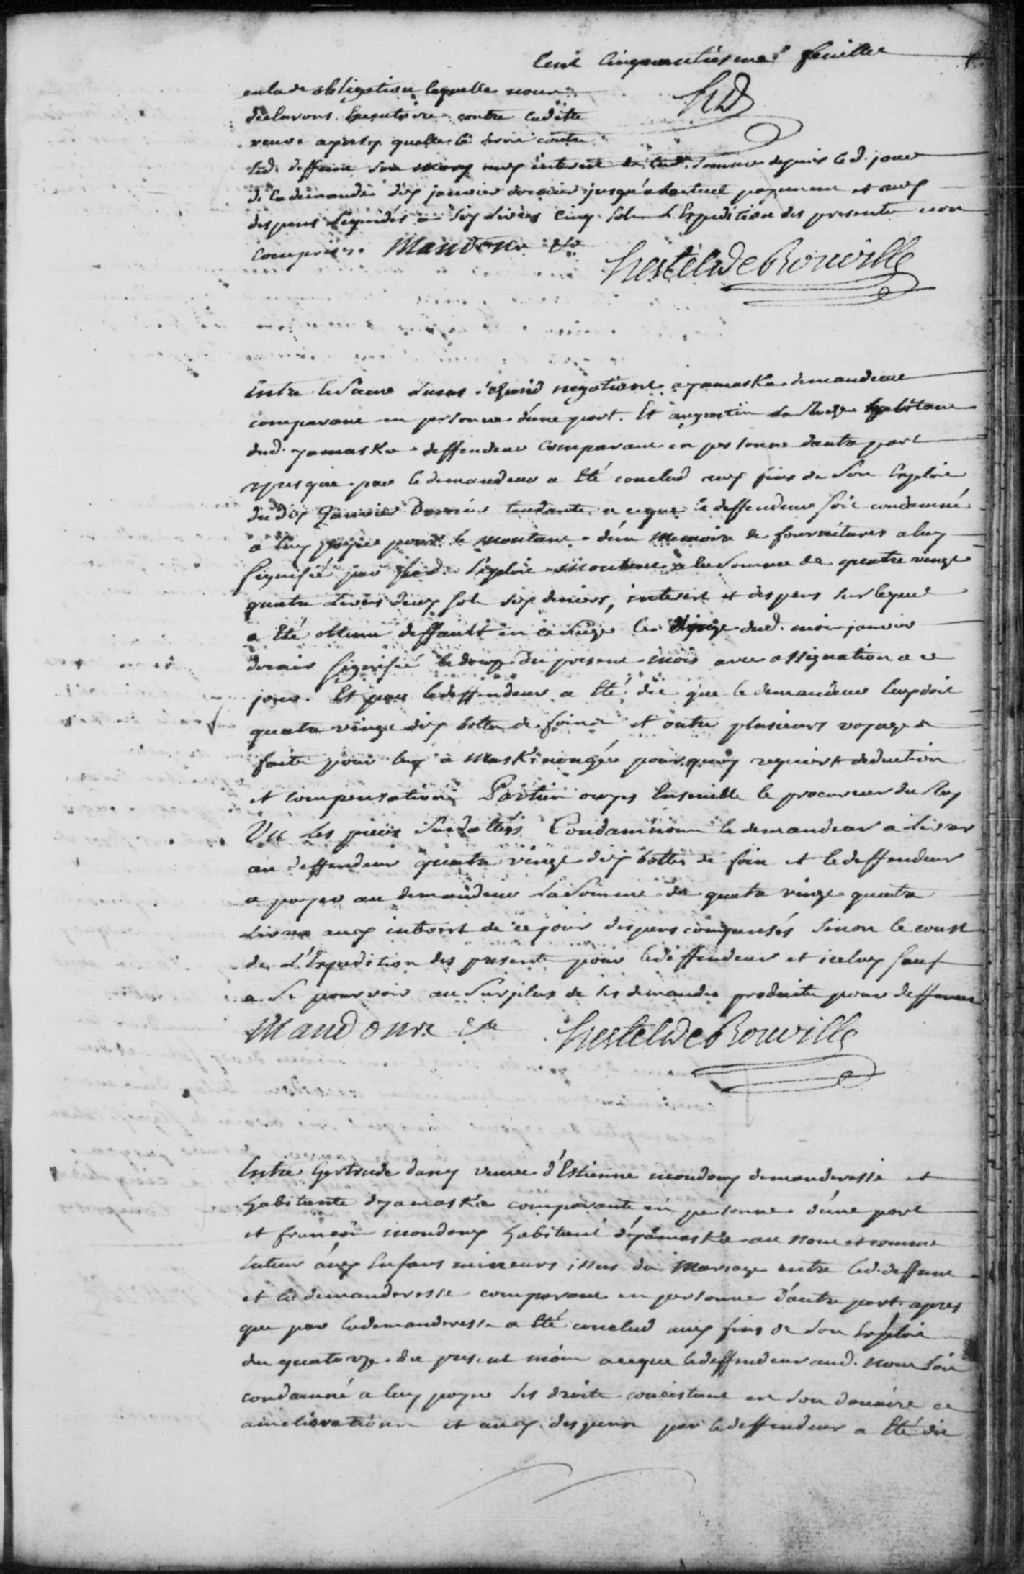 Cent Cinquantiesme feuillet
HD
en lad. obligation laquelle nous
declarons Executoire contre laditte
veuve ainsy quelle le seroit contre
led. deffunt son mary aux interest de lad. somme depuis led. jour
de la demande dix janvier dernier jusqu'a l'actuel payement et aux
despens liquidés a dix livres cinq sols L'Expedition des presentes non
comprise. Mandons &a
hertel de Rouville
Entre le Sieur negotiant a yamaska demandeur
comparant en personne d'une part. Et augustin habitant
dud. yamaska deffendeur comparant en personne d'autre part
apres que par le demandeur a Eté conclud aux fins de son Exploit
du dix Janvier Dernier tendante a ceque le deffendeur soit condamné
a luy payer pour le montant d'un Memoire de fournitures a luy
signifié par led. Exploit montant a la somme de quatre vingt
quatre Livres deux sols six deniers, interest et despens sur lequel
a Eté obtenu deffault en ce Siege le dud. mois janvier
dernier signifié le douze du present mois avec assignation a ce
jour. Et par le deffendeur a Eté dit que le demandeur luy doit
quatre vingt dix bottes de foin et outre plusieurs voyages
faits pour luy a Maskinongée pourquoy requiert deduction
et compensation. Parties ouyes Ensemble le procureur du Roy
Vu les pieces Susdattées Condamnons le demandeur a Livrer
au deffendeur quatre vingt dix bottes de foin et le deffendeur
a payer au demandeur La Somme de quatre vingt quatre
Livres aux interest de ce jour despens compensés sinon le coust
de L'Expedition des presentes pour le deffendeur et iceluy sauf
a se pourvoir au Surplus de ses demandes produites pour deffenses
Mandons &a hertel de Rouville
Entre Gertrude dany veuve d'Estienne mondoux demanderesse et
habitante d'yamaska comparante en personne d'une part
et françois mondoux habitant d'yamaska au Nom et comme
tuteur aux Enfans mineurs issus du Mariage entre led. deffunt
et la demanderesse comparant en personne d'autre part apres
que par la demanderesse a Eté conclud aux fins de son Exploit
du quatorze du present mois a ceque le deffendeur aud. Nom soit
condamné a luy payer ses droits consistant en son douaire et
ameliorations et aux despens par le deffendeur a Eté dit